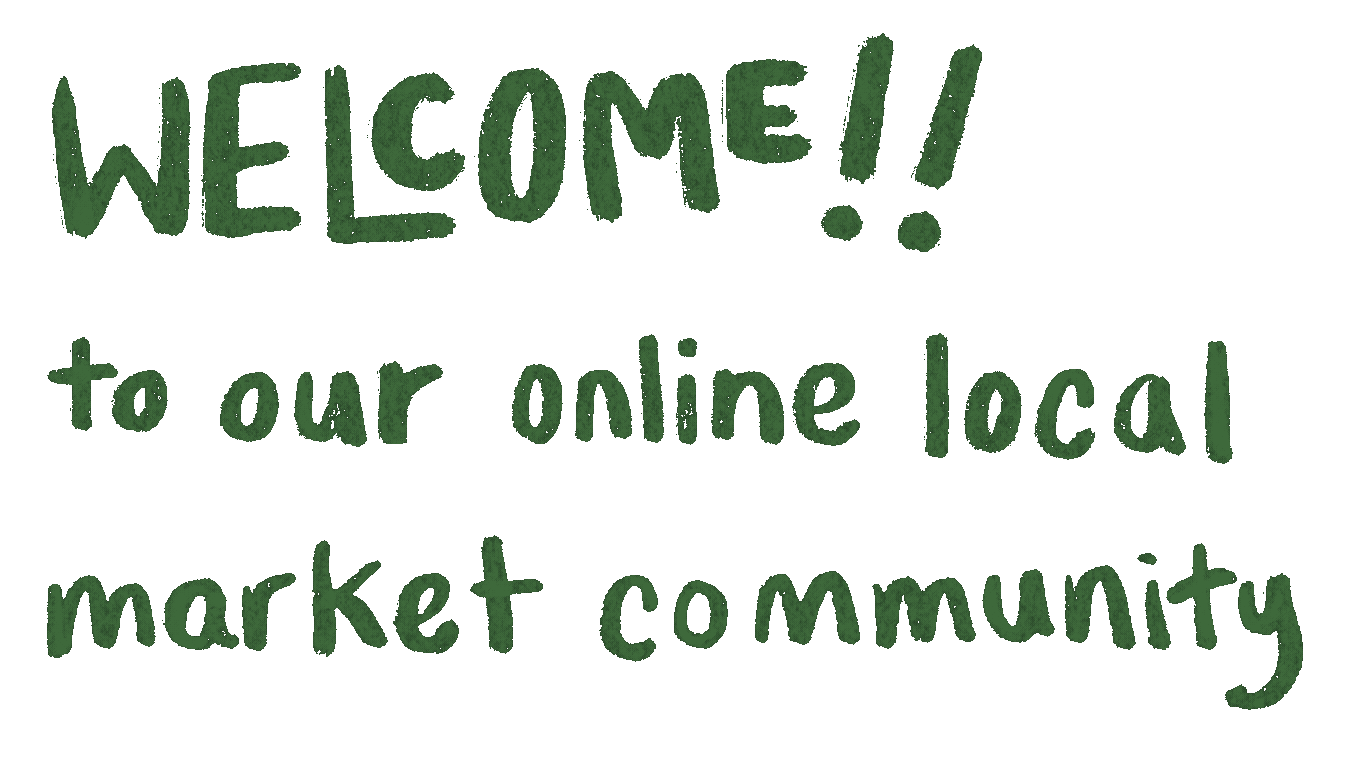 WELCOME!!
to our online local
market community